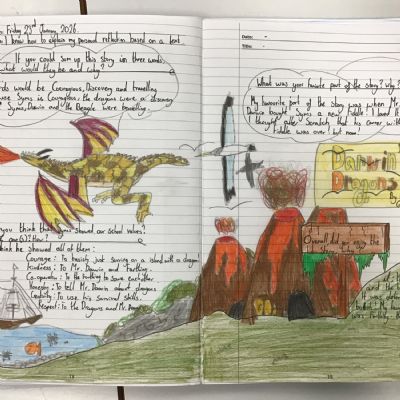 Friday 23rd January 2026
I know how to explain my personal reflection based on a text
If you could sum up this story in three words,
what would they be and why?
ds would be Courageous, Discovery and travelling
Syms is Courageous, the dragons were a discovery
Syms, Darwin and the Beagle were travelling.
you think that Syms showed our school values?
one(s)? How?
he showed all of them:
Courage: To basicly just surving on a island with a dragon
Kindness: To Mr. Darwin and Farthing.
Co-operation: To the Farthing to save each other
Honesty: To tell Mr. Darwin about dragons
To use his survival skills.
Respect: To the Dragons and Mr. Darwin
DATE:
TITLE:
What was your favourite part of the story? Why?
My favourite part of the story was when Mr.
Darwin bought Syms a new fiddle. I loved it
thought after Scratch, that his career with
fiddle was over, but now!
Darwin
Dragons
By
Overall, did you enjoy the
story
and the
It was
but
was Farthing